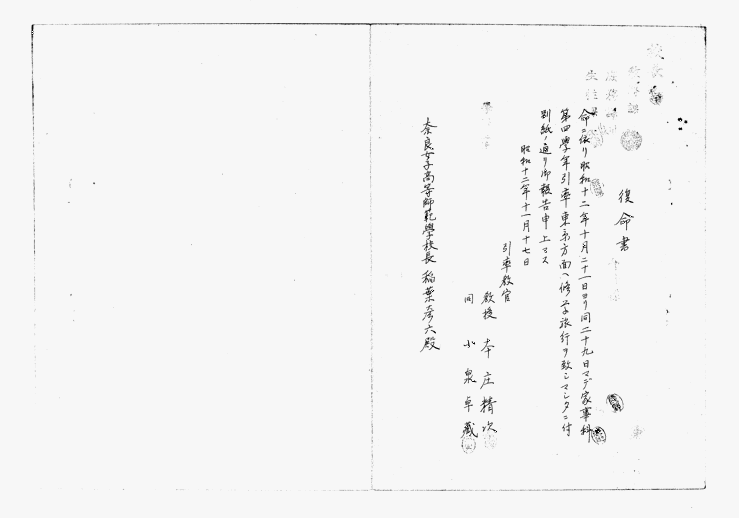 復命書
命ニ依リ昭和十二年十月二十一日ヨリ同二十九日マデ家事科
第四學年引率東京方面ヘ修学旅行ヲ致シマシタニ付
別紙ノ通リ御報告申上マス
昭和十二年十一月十七日
引率教官
教授 本庄精次
同 小泉卓蔵
奈良女子高等師範學校長 稲葉彦六殿